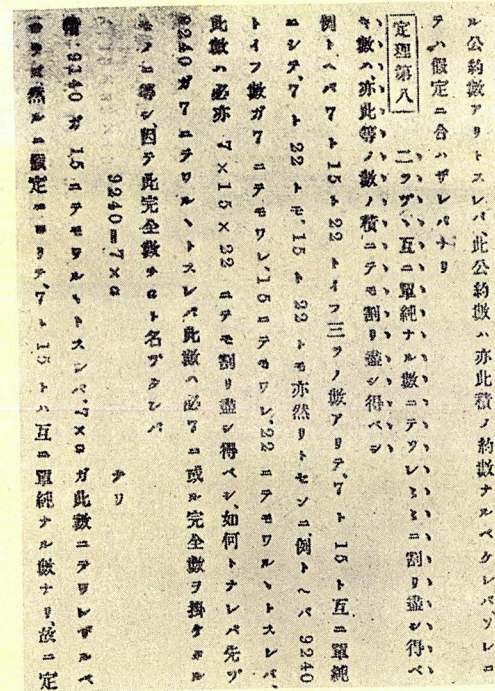 ル公約數アリトスレバ、此公約數ハ亦此積ノ約數ナルベケレバソレコ
ソハ假定ニ合ハザレバナリ
定理第八 二ツヅヽ互ニ單純ナル數ニテワレミミニ割リ盡シ得ベ
キ數ハ亦此等ノ數ノ積ニテモ割リ盡シ得ベシ
例トヘバ 7 ト 15 ト 22 トイフ三ツノ數アリテ、7 ト 15 ト互ニ單純
ニシテ、7 ト 22 トモ、15 ト 22 トモ亦然リトセンニ例トヘバ 9240
トイフ數ガ 7 ニテモワレ、15 ニテモワレ、22 ニテモワルヽトスレバ、
此數ハ必亦 7×15×22 ニテモ割リ盡シ得ベシ、如何トナレバ先ヅ
9240 ガ 7 ニテワルヽトスレバ此數ハ必 7 ニ或ル完全數ヲ掛ケタル
モノニ等シ、因テ此完全數ヲ a ト名ヅクレバ
9240=7×a ナリ
9240 ガ 15 ニテモワルヽトスレバ、7×a ガ此數ニテワレザルベ
然ルニ假定ニヨリテ、7 ト 15 トハ互ニ單純ナル數ナリ、故ニ定